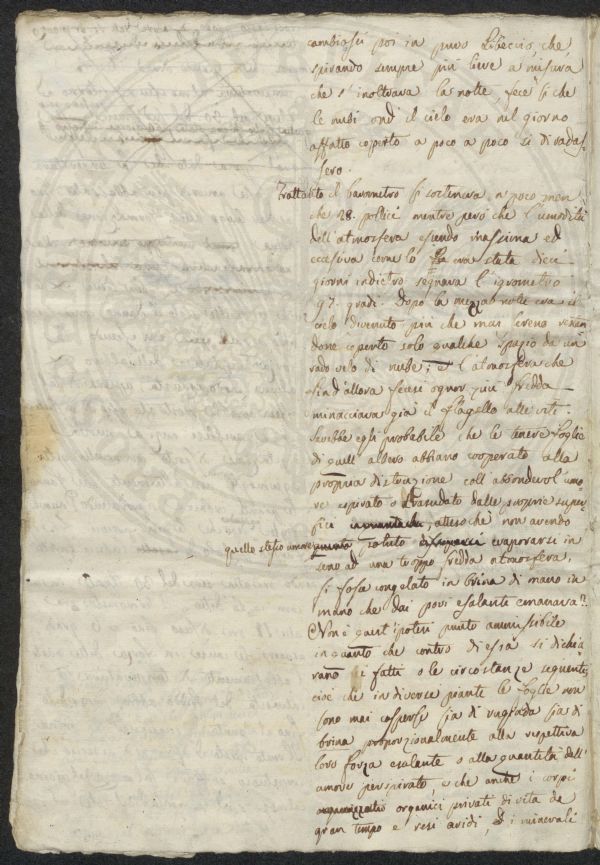 cambiossi poi in puro Libeccio, che,
spirando sempre più lieve a misura
che s'inoltrava la notte, fece sì che
le nubi ond'il cielo era nel giorno
affatto coperto a poco a poco si diradas-
sero.
Trattanto il barometro si sosteneva a poco men
che 28. pollici mentre però che l'umidità
dell'atmosfera essendo massima ed
eccessiva come lo era stata dieci
giorni indietro segnava l'igrometro
97. gradi. Dopo la mezzanotte era il
cielo divenuto più che mai sereno restan
done coperto solo qualche spazio da un
rado velo di nube; e l'atmosfera che
sind'allora fecesi ognor più fredda
minacciava già il flagello alle viti.
Sarebbe egli probabile che le tenere foglie
di quell'albero abbiano cooperato alla
propria distruzione coll'abbondevol umo
re espirato o trasudato dalle proprie super
fici, attesochè non avendo
quello stesso umore potuto evaporarsi in
seno ad una troppo fredda atmosfera,
si fosse congelato in brina di mano in
mano che dai pori esalanti emanava?
Non è quest'ipotesi punto ammissibile
inquanto che contro di essa si dichia
rano i fatti o le circostanze seguenti
cioè che in diverse piante le foglie non
sono mai cosperse sia di rugiada sia di
brina proporzionalmente alla respettiva
loro forza esalante o alla quantità dell'
umore perspirato, e che anche i corpi
organici privati di vita da
gran tempo e resi aridi, ed i minerali